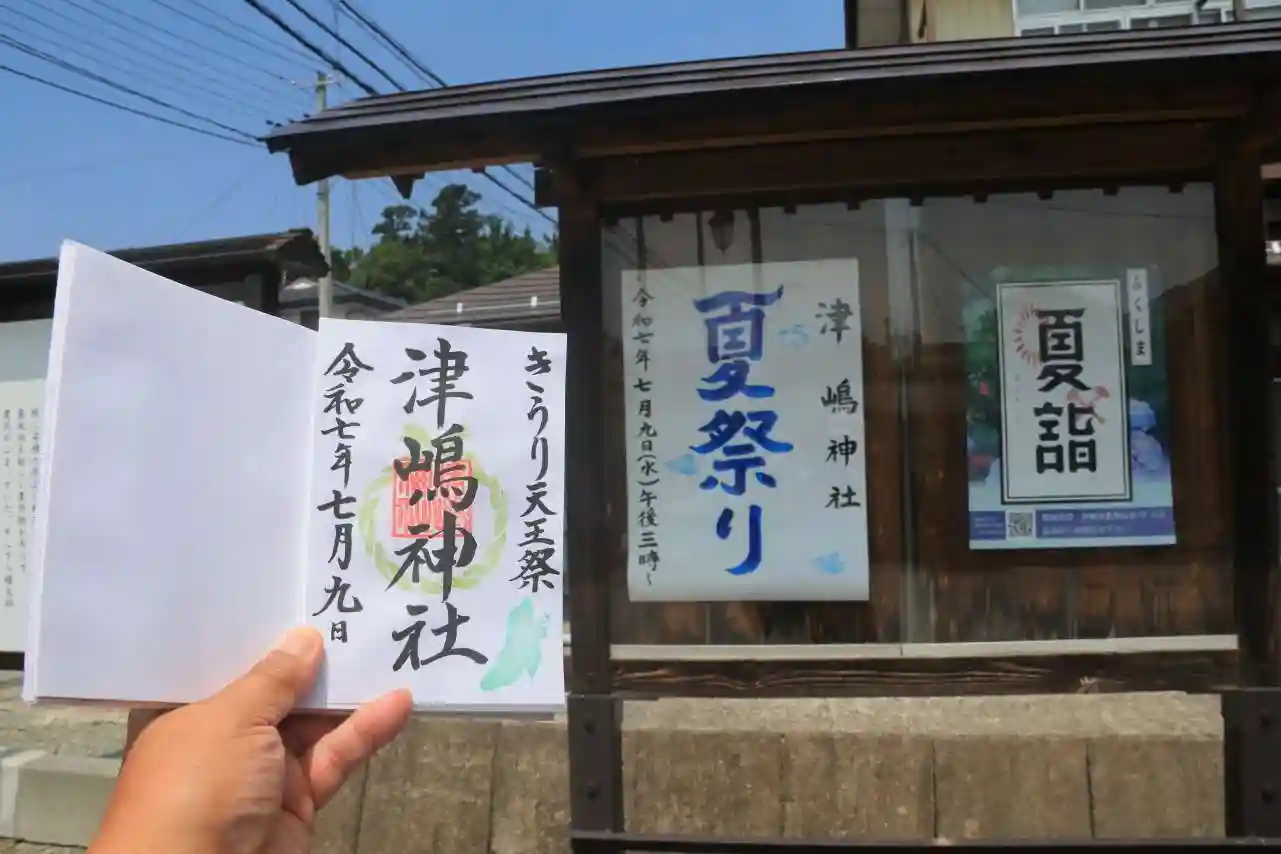 きうり天王祭
津嶋神社
令和七年七月九日
津嶋神社
夏祭り
令和七年七月九日(水)午後三時〜
ふくしま
夏詣